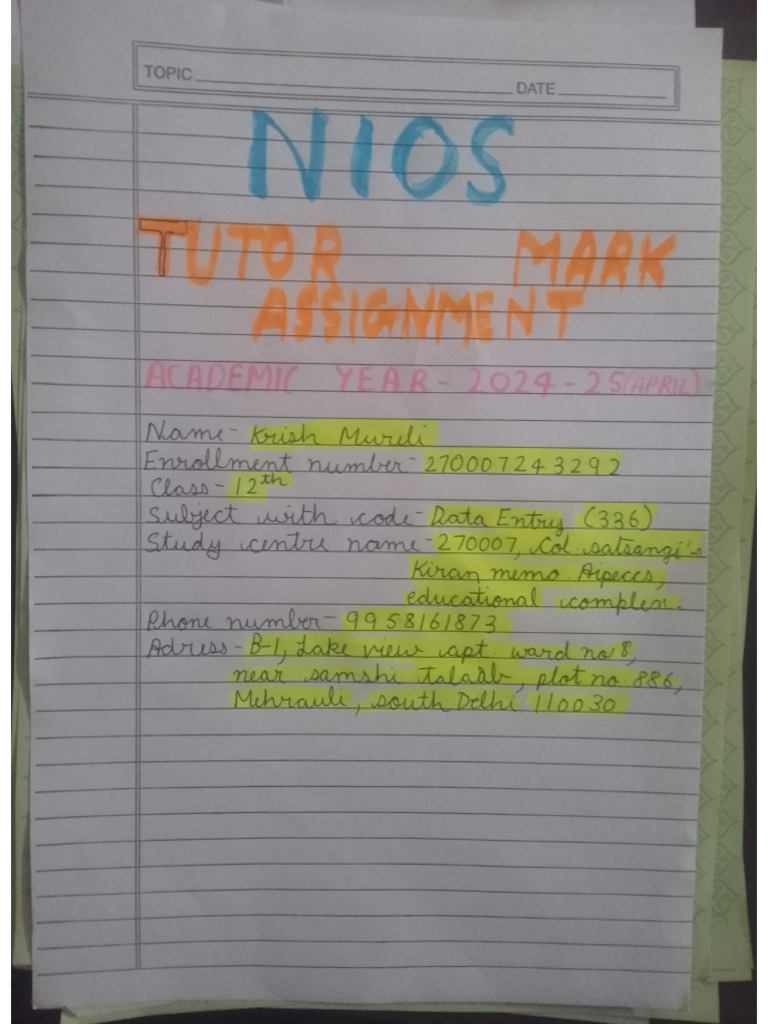 TOPIC DATE
NIOS
TUTOR MARK
ASSIGNMENT
ACADEMIC YEAR - 2024 - 25 (APRIL)
Name - Krish Mureli
Enrollment number - 270007243292
Class - 12th
Subject with code - Data Entry (336)
Study centre name - 270007, Col. satsangi's
Kiran memo. Aipeccs,
educational complex.
Phone number - 9958161873
Adress - B-1, Lake view apt. ward no 8,
near samshi talaab, plot no 886,
Mehrauli, south Delhi 110030